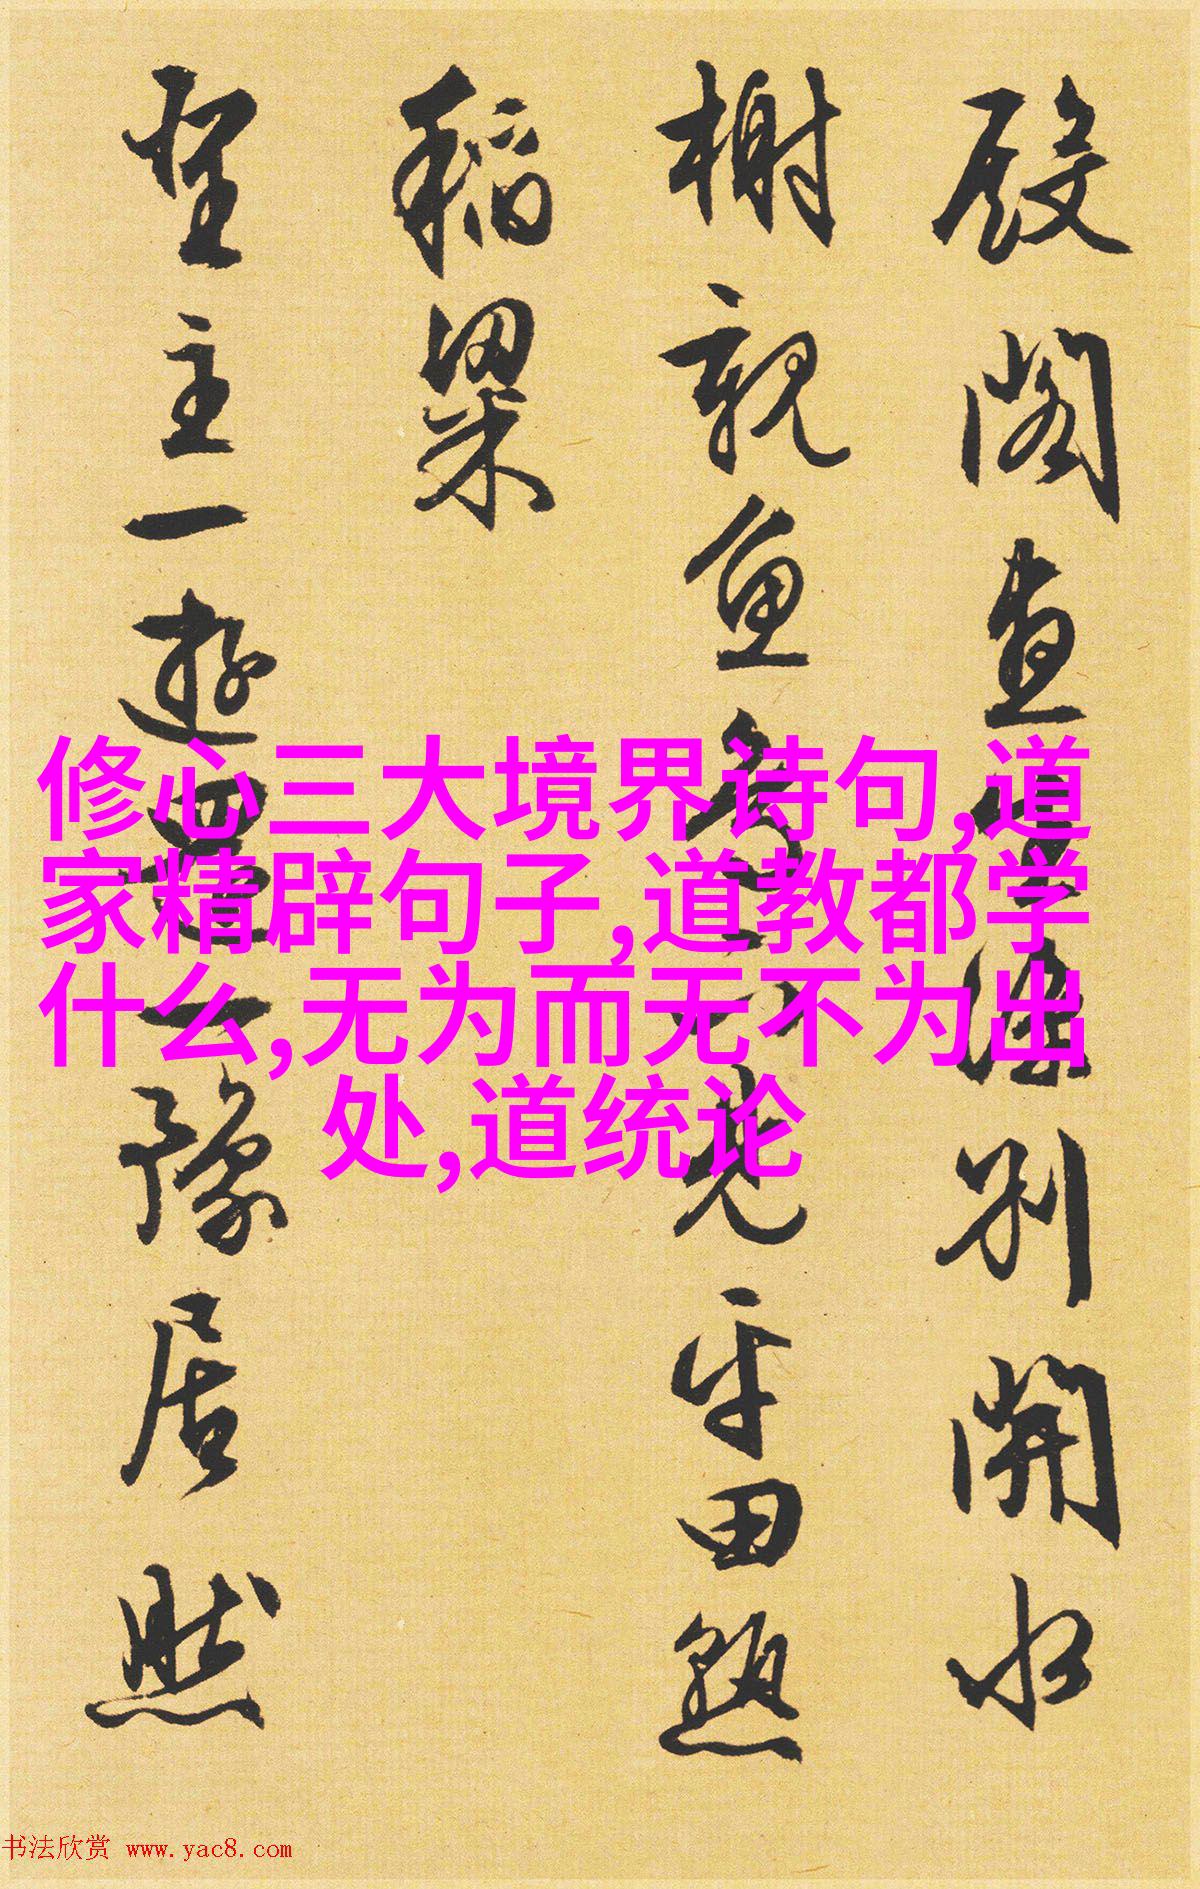 殿阁直█深别开水
榭观鱼█████平田熟
稻粱
圣主一游还一豫居然
修心三大境界诗句,道
家精辟句子,道教都学
什么,无为而无不为出
处,道统论
书法欣赏 www.yac8.com